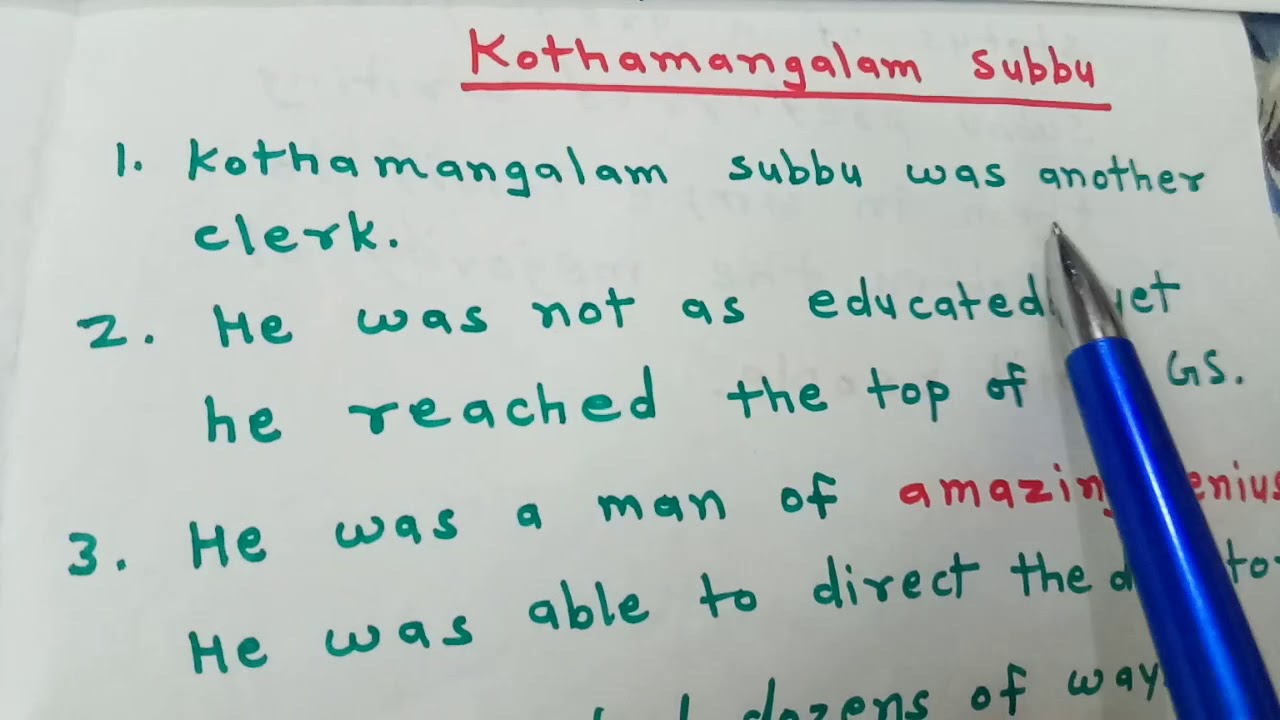 Kothamangalam Subbu
1. Kothamangalam Subbu was another
clerk.
2. He was not as educated yet
he reached the top of GS.
3. He was a man of amazing
He was able to direct the
dozens of way